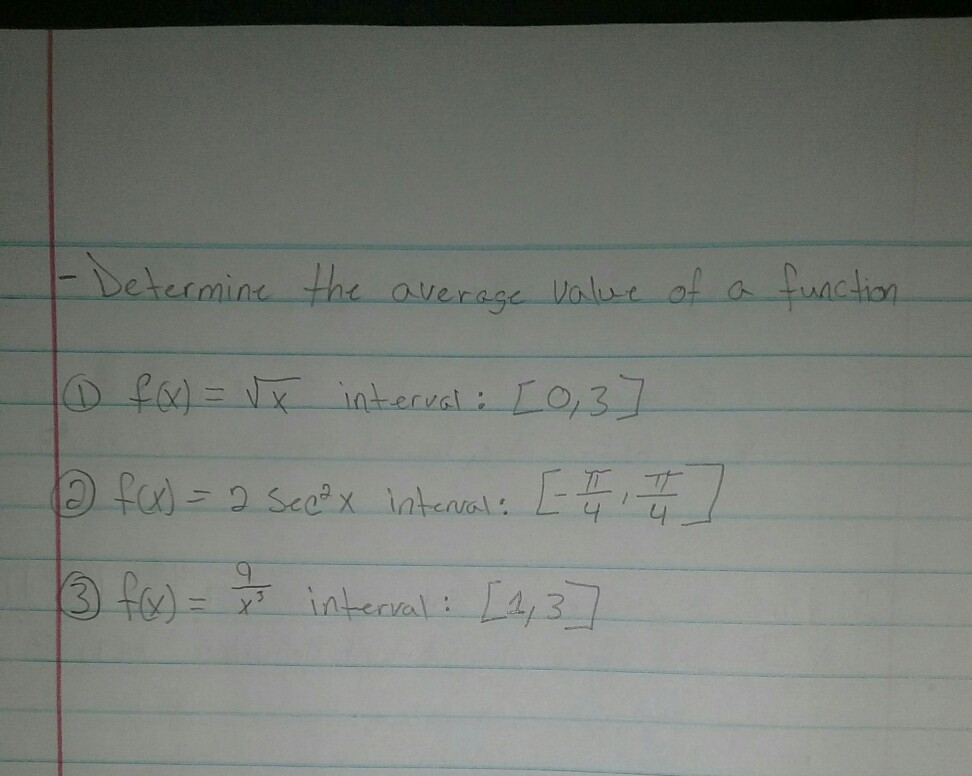 - Determine the average value of a function
① f(x) = √x interval: [0,3]
② f(x) = 2 sec²x interval: [-π/4, π/4]
③ f(x) = 9/x³ interval: [1,3]